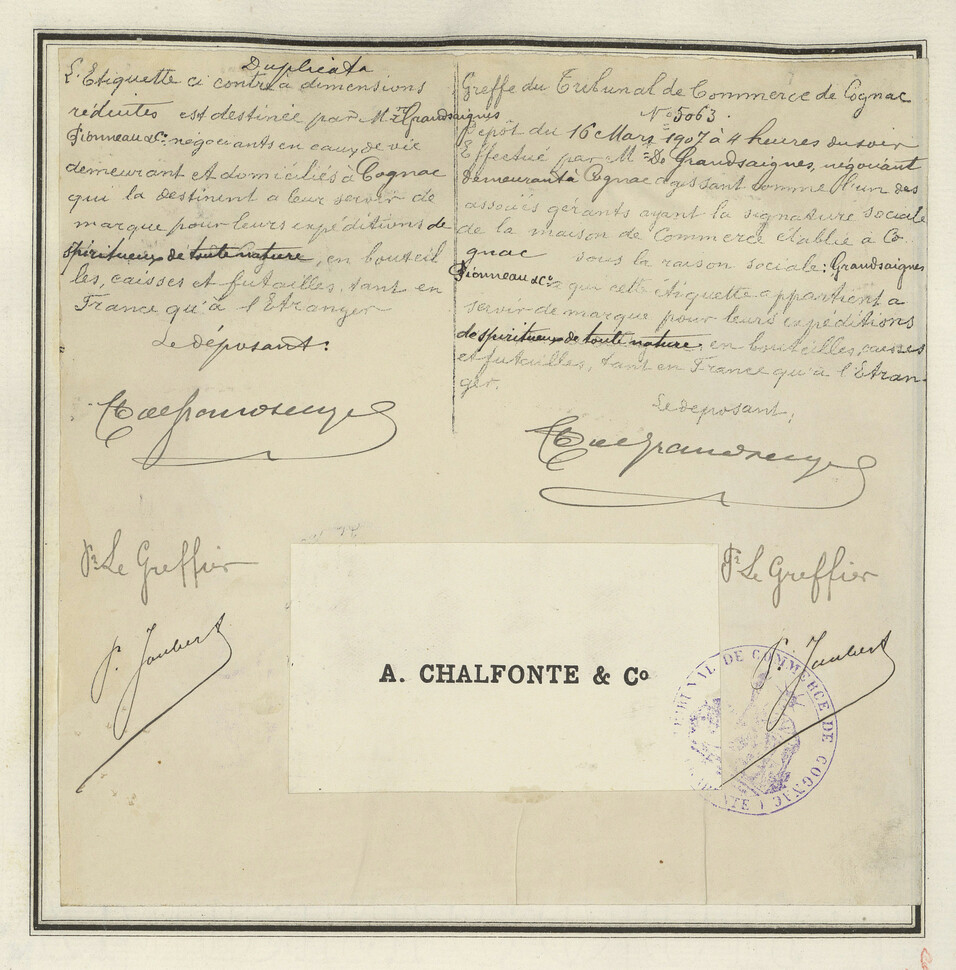 Duplicata
L'Etiquette ci contre à dimensions
réduites est destinée par Mrs Grandsaignes
Pionneau & Co. négociants en eaux de vie
demeurant et domiciliés à Cognac
qui la destinent à leur servir de
marque pour leurs expéditions de
spiritueux de toute nature, en bouteil
les, caisses et futailles, tant en
France qu'à l'Etranger
Le déposant:
Pr Le Greffier
P. Joubert
Greffe du Tribunal de Commerce de Cognac
No 5063.
Dépôt du 16 Mars 1907 à 4 heures du soir
Effectué par Mr De Grandsaignes, négociant
demeurant à Cognac agissant comme l'un des
associés gérants ayant la signature sociale
de la maison de Commerce établie à Co
gnac sous la raison sociale: Grandsaignes
Pionneau & Co qui cette étiquette appartient à
servir de marque pour leurs expéditions
de spiritueux de toute nature en bouteilles, caisses
et futailles, tant en France qu'à l'Etran-
ger.
Le déposant:
Pr Le Greffier
P. Joubert
A. CHALFONTE & Co
TRIBUNAL DE COMMERCE DE COGNAC